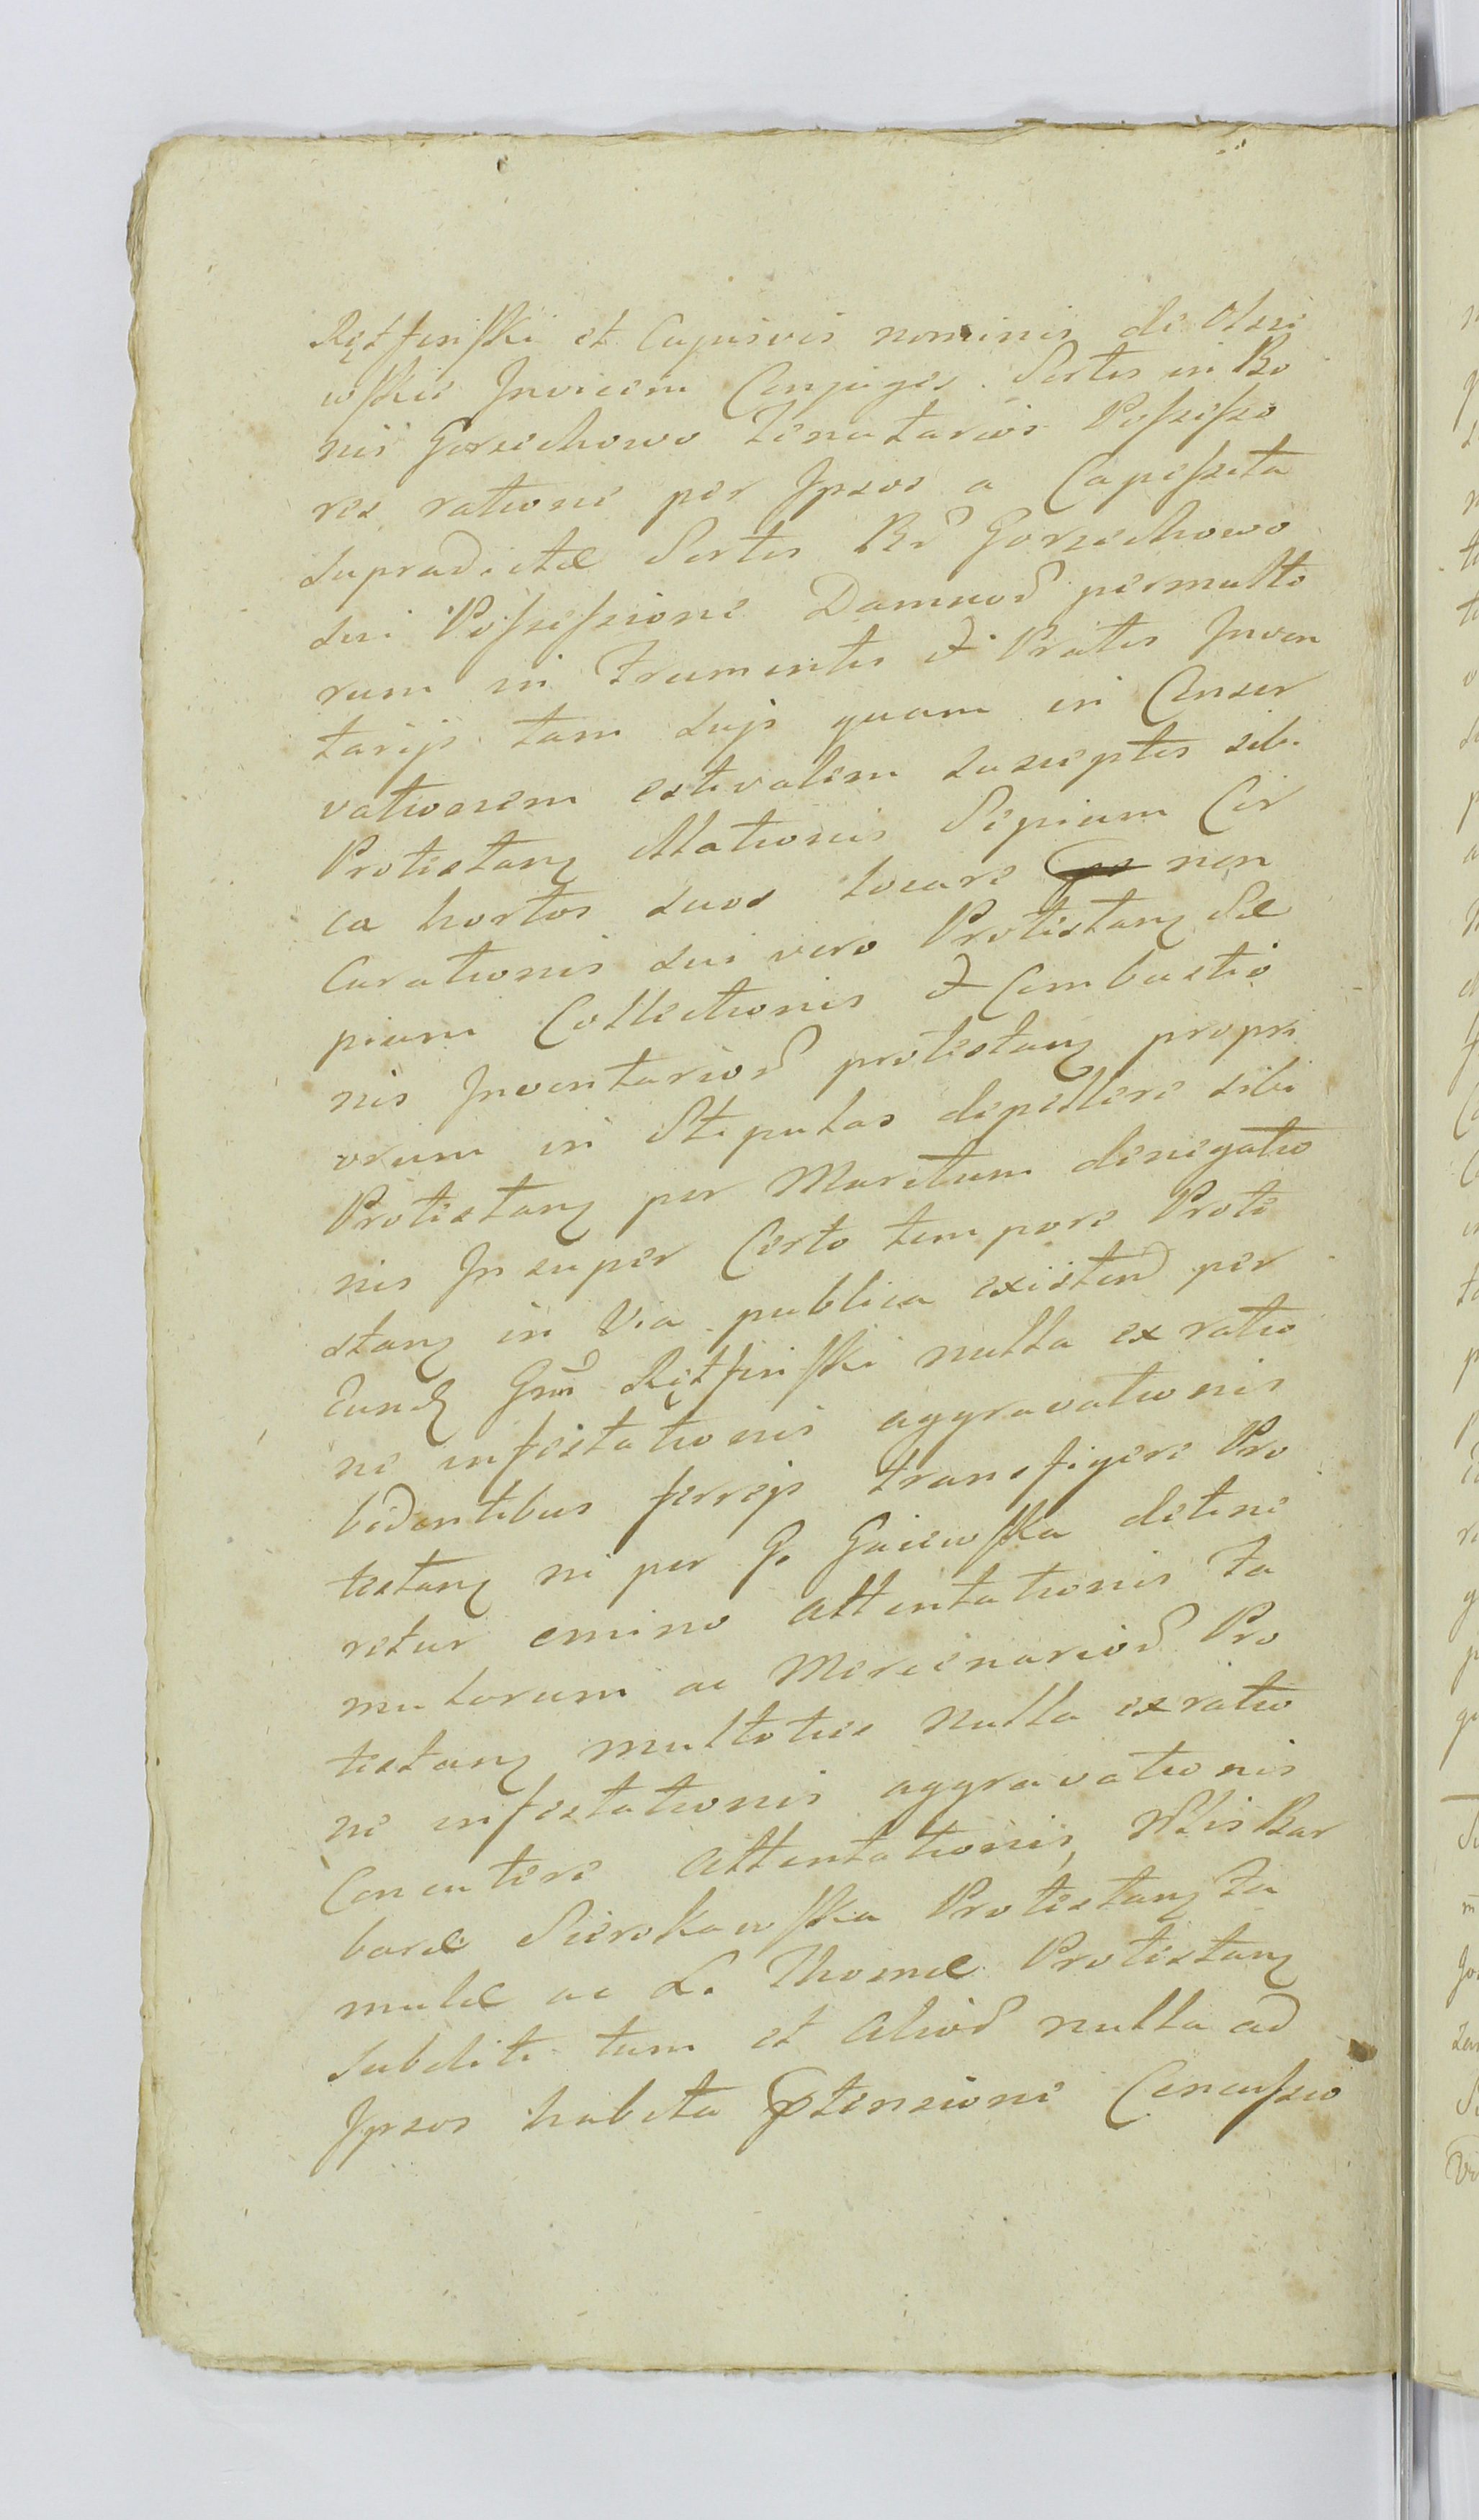 Rętfinski et Cujusvis nominis de Olszewskie
wskie Invicem Conjuges Sortis in Bo
nis Gorzechowo Tenutarios Possesso
res ratione per Ipsos a Capessita
supradictæ Sortis Bor̃ Gorzechowo
sui Possessione Damnor̃ permulto
rum in Frumentis & Pratis Inven
tarijs tam sujs quam in Conser
vationem estivalem susceptis sibi
Protestanz Illationis Sepium Cir
ca hortos suos locare non
Curationis sui vero Protestanz Sæ
pium Collectionis & Combustio
nis Inventarior̃ protestanz propri
orum in Stipulas depellere sibi
Protestanz per Maritum denegatio
nis Insuper Certo tempore Prote
stanz in Via publica existen̄ per
Eund Gnũ Rętfinski nulla ex ratio
ne infestationis aggravationis
bidentibus ferrejs transfigere Pro
testanz ni per G. Gaiewska detine
retur emino Attentationis Fa
mulorum ac Mercenarior̃ Pro
testanz multoties Nulla ex ratio
ne infestationis aggravationis
Concutere Attentationis, Nlis Bar
baræ Sierakowska Protestanz Fa
mulæ ac L. Thomæ Protestanz
Subditi tum et Alior̃ nulla ad
Ipsos habita Ptensione Concussio